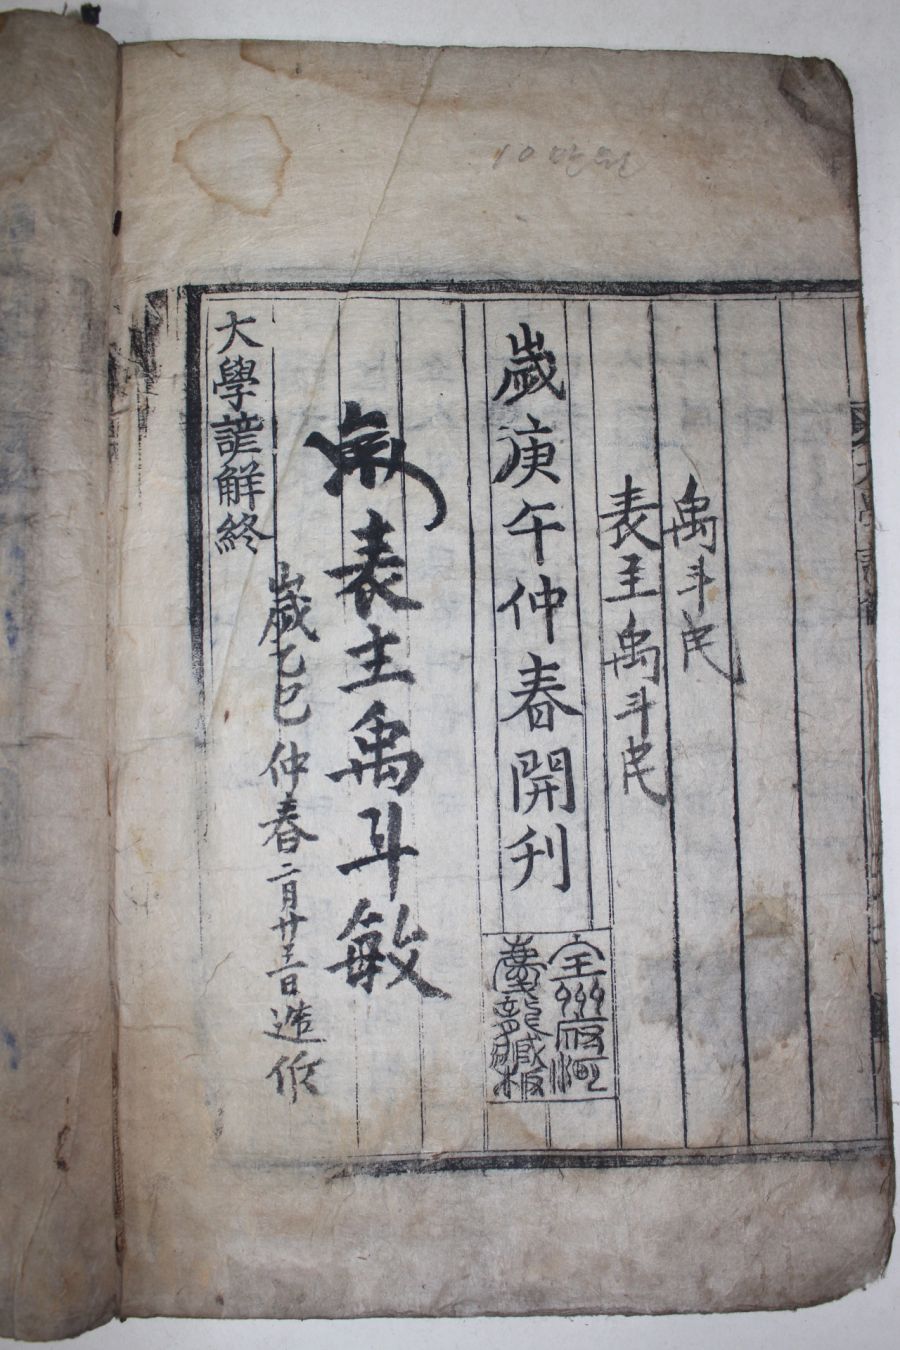 10만원
禹斗民
表主禹斗民
歲庚午仲春開刊
全州河慶龍藏板
表主禹斗敏
歲乙巳仲春二月廿三日造修
大學諺解終